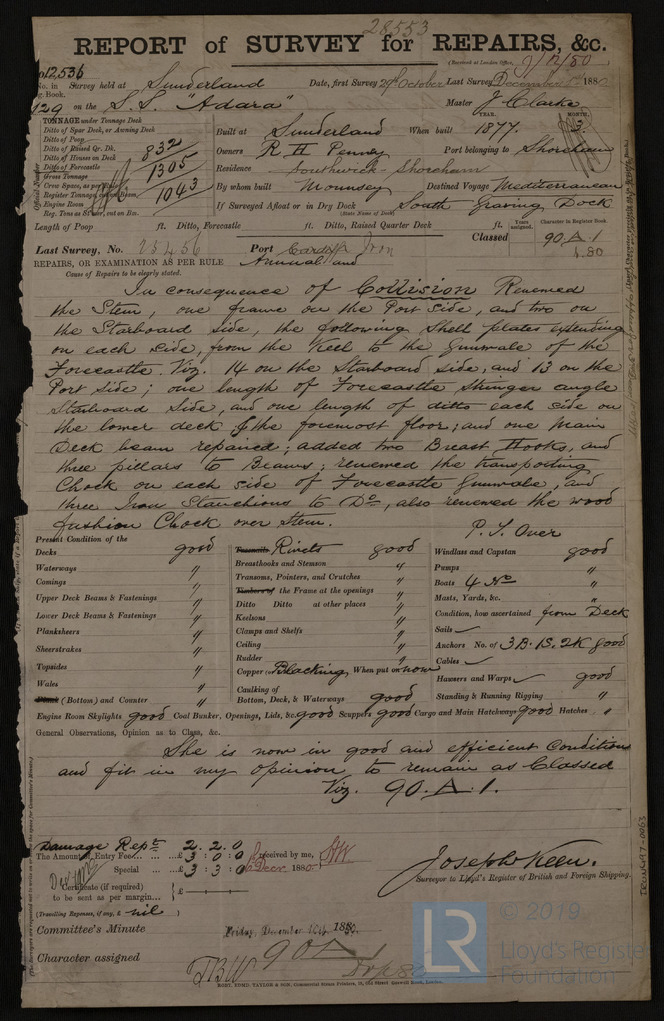 28553
REPORT of SURVEY for REPAIRS, &c.
(Received at London Office,
No. 12536 in Survey held at Sunderland Date, first Survey 29th October Last Survey December 1st 1880
Reg. Book.
129 on the S.S. "Adara" Master J Clarke
TONNAGE under Tonnage Deck
YEAR. MONTH.
Ditto of Spar Deck, or Awning Deck
Built at Sunderland When built 1877. 3
Ditto of Poop
Ditto of Raised Qr. Dk. 832
Owners R H Penney Port belonging to Shoreham
Ditto of Houses on Deck
Ditto of Forecastle 1305
Residence Southwick - Shoreham
Gross Tonnage
Crew Space, as per Rule
By whom built Mounsey Destined Voyage Mediterranean
Register Tonnage 1043
Engine Room
If Surveyed Afloat or in Dry Dock South Graving Dock
(State Name of Dock)
Reg. Tons as St'mr, cut on Bm.
Official Number
Length of Poop ft. Ditto, Forecastle ft. Ditto, Raised Quarter Deck ft.
Years assigned. Character in Register Book.
Classed 90.A.1
4.80
Last Survey, No. 25456 Port Cardiff Iron
REPAIRS, OR EXAMINATION AS PER RULE Annual and
Cause of Repairs to be clearly stated.
In consequence of Collision Renewed
the Stem, one frame on the Port side, and two on
the Starboard side, the following Shell plates extending
on each side, from the Keel to the Gunwale of the
Forecastle. Viz. 14 on the Starboard side, and 13 on the
Port side; one length of Forecastle Stringer angle
Starboard Side, and one length of ditto each side on
the lower deck & the foremost floor; and one Main
Deck beam repaired; added two Breast Hooks, and
three pillars to Beams; renewed the transporting
Chock on each side of Forecastle Gunwale, and
three Iron Stanchions to Do, also renewed the wood
fashion Chock over Stem.
P. T. Over
Present Condition of the
Decks good
Waterways "
Comings "
Upper Deck Beams & Fastenings "
Lower Deck Beams & Fastenings "
Planksheers "
Sheerstrakes "
Topsides "
Wales "
(Bottom) and Counter "
Treenails Rivets good
Breasthooks and Stemson "
Transoms, Pointers, and Crutches "
Timbers of the Frame at the openings "
Ditto Ditto at other places "
Keelsons "
Clamps and Shelfs "
Ceiling "
Rudder "
Copper (or Blacking When put on now
Caulking of
Bottom, Deck, & Waterways good
Windlass and Capstan good
Pumps "
Boats 4 No "
Masts, Yards, &c. "
Condition, how ascertained from Deck
Sails
Anchors No. of 3B. 1S. 2K good
Cables
Hawsers and Warps good
Standing & Running Rigging "
Engine Room Skylights good Coal Bunker, Openings, Lids, &c. good Scuppers good Cargo and Main Hatchways good Hatches "
General Observations, Opinion as to Class, &c.
She is now in good and efficient Condition
and fit in my opinion to remain as Classed
Viz. 90.A.1.
Damage Rept 2.2.0
The Amount of Entry Fee £3:0:0 Received by me,
Special £3:3:0 1880
Certificate (if required)
to be sent as per margin £
(Travelling Expenses, if any, £ nil )
Joseph Keen.
Surveyor to Lloyd's Register of British and Foreign Shipping.
Committee's Minute Friday, December 10th, 1880.
Character assigned 90 A 1
ROBT. EDMD. TAYLOR & SON, Commercial Steam Printers, 19, Old Street, Goswell Road, London.
IRON497-0063
LR
© 2019
Lloyd's Register
Foundation